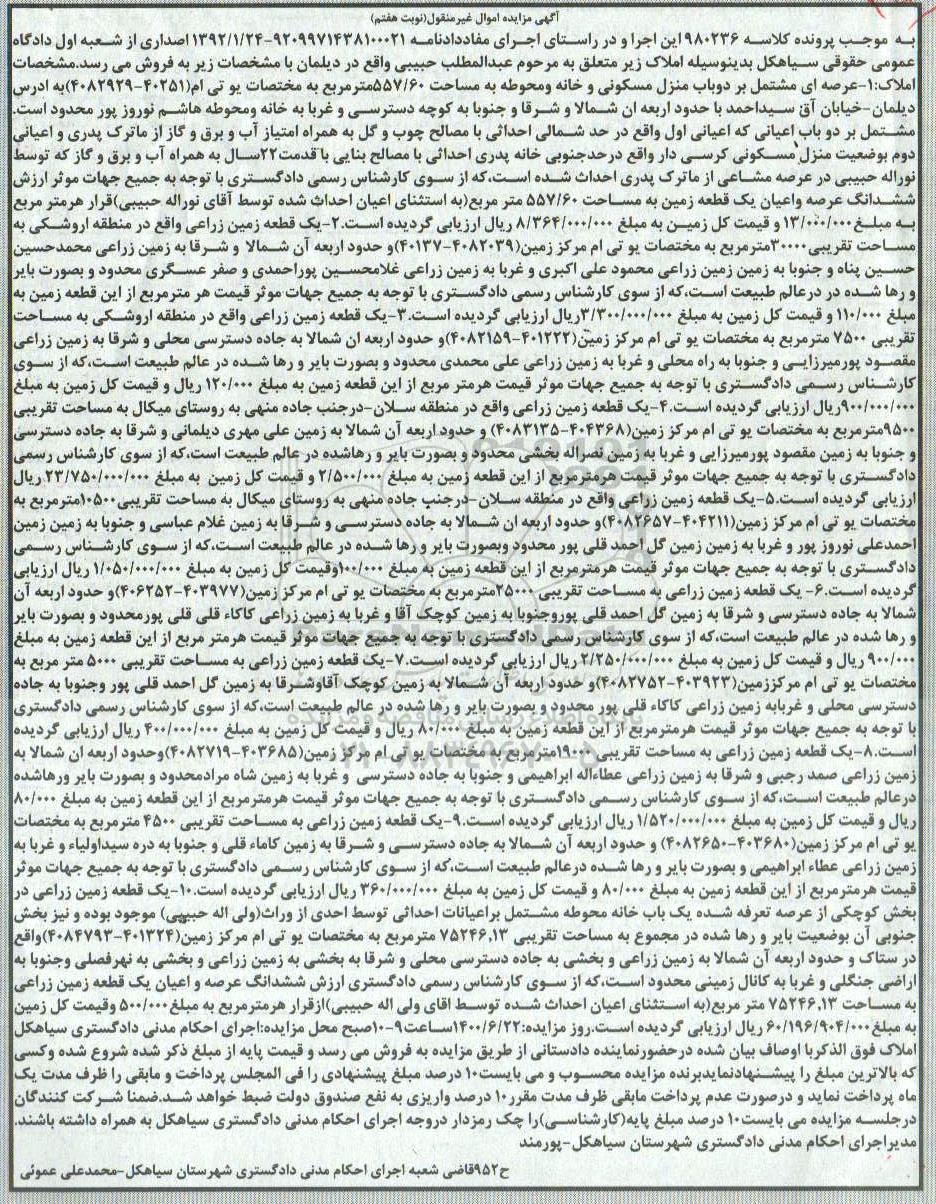 آگهی مزایده اموال غیرمنقول(نوبت هفتم)
به موجب پرونده کلاسه ۹۸۰۲۳۶ این اجرا و در راستای اجرای مفاددادنامه ۹۲۰۹۹۷۱۴۳۸۱۰۰۰۲۱-۱۳۹۲/۱/۲۴ اصداری از شعبه اول دادگاه
عمومی حقوقی سیاهکل بدینوسیله املاک زیر متعلق به مرحوم عبدالمطلب حبیبی واقع در دیلمان با مشخصات زیر به فروش می رسد.مشخصات
املاک:۱-عرصه ای مشتمل بر دوباب منزل مسکونی و خانه ومحوطه به مساحت ۵۵۷/۶۰مترمربع به مختصات یو تی ام(۴۰۲۵۱-۴۰۸۲۹۲۹)به ادرس
دیلمان-خیابان آق سیداحمد با حدود اربعه ان شمالا و شرقا و جنوبا به کوچه دسترسی و غربا به خانه ومحوطه هاشم نوروز پور محدود است.
مشتمل بر دو باب اعیانی که اعیانی اول واقع در حد شمالی احداثی با مصالح چوب و گل به همراه امتیاز آب و برق و گاز از ماترک پدری و اعیانی
دوم بوضعیت منزل مسکونی کرسی دار واقع درحدجنوبی خانه پدری احداثی با مصالح بنایی با قدمت۲۲سال به همراه آب و برق و گاز که توسط
نوراله حبیبی در عرصه مشاعی از ماترک پدری احداث شده است،که از سوی کارشناس رسمی دادگستری با توجه به جمیع جهات موثر ارزش
ششدانگ عرصه واعیان یک قطعه زمین به مساحت ۵۵۷/۶۰ متر مربع(به استثنای اعیان احداث شده توسط آقای نوراله حبیبی)قرار هرمتر مربع
به مبلغ ۱۳/۰۰۰/۰۰۰و قیمت کل زمین به مبلغ ۸/۳۶۴/۰۰۰/۰۰۰ ریال ارزیابی گردیده است.۲-یک قطعه زمین زراعی واقع در منطقه اروشکی به
مساحت تقریبی۳۰۰۰۰مترمربع به مختصات یو تی ام مرکز زمین(۴۰۸۲۰۳۹-۴۰۱۳۷)و حدود اربعه آن شمالا و شرقا به زمین زراعی محمدحسین
حسین پناه و جنوبا به زمین زمین زراعی محمود علی اکبری و غربا به زمین زراعی غلامحسین پوراحمدی و صفر عسگری محدود و بصورت بایر
و رها شده در درعالم طبیعت است،که از سوی کارشناس رسمی دادگستری با توجه به جمیع جهات موثر قیمت هر مترمربع از این قطعه زمین به
مبلغ ۱۱۰/۰۰۰ و قیمت کل زمین به مبلغ ۳/۳۰۰/۰۰۰/۰۰۰ریال ارزیابی گردیده است.۳-یک قطعه زمین زراعی واقع در منطقه اروشکی به مساحت
تقریبی ۷۵۰۰ مترمربع به مختصات یو تی ام مرکز زمین(۴۰۱۲۲۲-۴۰۸۲۱۵۹)و حدود اربعه ان شمالا به جاده دسترسی محلی و شرقا به زمین زراعی
مقصود پورمیرزایی و جنوبا به راه محلی و غربا به زمین زراعی علی محمدی محدود و بصورت بایر و رها شده در عالم طبیعت است،که از سوی
کارشناس رسمی دادگستری با توجه به جمیع جهات موثر قیمت هرمتر مربع از این قطعه زمین به مبلغ ۱۲۰/۰۰۰ ریال و قیمت کل زمین به مبلغ
۹۰۰/۰۰۰/۰۰۰ریال ارزیابی گردیده است.۴-یک قطعه زمین زراعی واقع در منطقه سلان-درجنب جاده منهی به روستای میکال به مساحت تقریبی
۹۵۰۰مترمربع به مختصات یو تی ام مرکز زمین(۴۰۴۳۶۸-۴۰۸۳۱۳۵) و حدود اربعه آن شمالا به زمین علی مهری دیلمانی و شرقا به جاده دسترسی
و جنوبا به زمین مقصود پورمیرزایی و غربا به زمین نصراله بخشی محدود و بصورت بایر و رهاشده در عالم طبیعت است،که از سوی کارشناس رسمی
دادگستری با توجه به جمیع جهات موثر قیمت هرمترمربع از این قطعه زمین به مبلغ ۲/۵۰۰/۰۰۰ و قیمت کل زمین به مبلغ ۲۳/۷۵۰/۰۰۰/۰۰۰ ریال
ارزیابی گردیده است.۵-یک قطعه زمین زراعی واقع در منطقه سلان-درجنب جاده منهی به روستای میکال به مساحت تقریبی۱۰۵۰۰مترمربع به
مختصات یو تی ام مرکز زمین(۴۰۴۲۱۱-۴۰۸۲۶۵۷)و حدود اربعه ان شمالا به جاده دسترسی و شرقا به زمین غلام عباسی و جنوبا به زمین زمین
احمدعلی نوروز پور و غربا به زمین زمین گل احمد قلی پور محدود وبصورت بایر و رها شده در عالم طبیعت است،که از سوی کارشناس رسمی
دادگستری با توجه به جمیع جهات موثر قیمت هرمترمربع از این قطعه زمین به مبلغ ۱۰۰/۰۰۰وقیمت کل زمین به مبلغ ۱/۰۵۰/۰۰۰/۰۰۰ ریال ارزیابی
گردیده است.۶- یک قطعه زمین زراعی به مساحت تقریبی ۲۵۰۰۰مترمربع به مختصات یو تی ام مرکز زمین(۴۰۳۹۷۷-۴۰۶۲۵۲)و حدود اربعه آن
شمالا به جاده دسترسی و شرقا به زمین گل احمد قلی پوروجنوبا به زمین کوچک آقا و غربا به زمین زراعی کاکاء قلی قلی پورمحدود و بصورت بایر
و رها شده در عالم طبیعت است،که از سوی کارشناس رسمی دادگستری با توجه به جمیع جهات موثر قیمت هرمتر مربع از این قطعه زمین به مبلغ
۹۰۰/۰۰۰ ریال و قیمت کل زمین به مبلغ ۲/۲۵۰/۰۰۰/۰۰۰ ریال ارزیابی گردیده است.۷-یک قطعه زمین زراعی به مساحت تقریبی ۵۰۰۰ متر مربع به
مختصات یو تی ام مرکززمین(۴۰۳۹۲۳-۴۰۸۲۷۵۲)و حدود اربعه آن شمالا به زمین کوچک آقاوشرقا به زمین گل احمد قلی پور وجنوبا به جاده
دسترسی محلی و غربابه زمین زراعی کاکاء قلی پور محدود و بصورت بایر و رها شده در عالم طبیعت است،که از سوی کارشناس رسمی دادگستری
با توجه به جمیع جهات موثر قیمت هرمترمربع از این قطعه زمین به مبلغ ۸۰/۰۰۰ ریال و قیمت کل زمین به مبلغ ۴۰۰/۰۰۰/۰۰۰ ریال ارزیابی گردیده
است.۸-یک قطعه زمین زراعی به مساحت تقریبی ۱۹۰۰۰مترمربع به مختصات یو تی ام مرکز زمین(۴۰۳۶۸۵-۴۰۸۲۷۱۹)وحدود اربعه ان شمالا به
زمین زراعی صمد رجبی و شرقا به زمین زراعی عطاءاله ابراهیمی و جنوبا به جاده دسترسی و غربا به زمین شاه مرادمحدود و بصورت بایر ورهاشده
درعالم طبیعت است،که از سوی کارشناس رسمی دادگستری با توجه به جمیع جهات موثر قیمت هرمترمربع از این قطعه زمین به مبلغ ۸۰/۰۰۰
ریال و قیمت کل زمین به مبلغ ۱/۵۲۰/۰۰۰/۰۰۰ ریال ارزیابی گردیده است.۹-یک قطعه زمین زراعی به مساحت تقریبی ۴۵۰۰ مترمربع به مختصات
یو تی ام مرکز زمین(۴۰۳۶۸۰-۴۰۸۲۶۵۰) و حدود اربعه آن شمالا به جاده دسترسی و شرقا به زمین کاماء قلی و جنوبا به دره سیداولیاء و غربا به
زمین زراعی عطاء ابراهیمی و بصورت بایر و رها شده درعالم طبیعت است،که از سوی کارشناس رسمی دادگستری با توجه به جمیع جهات موثر
قیمت هرمترمربع از این قطعه زمین به مبلغ ۸۰/۰۰۰ و قیمت کل زمین به مبلغ ۳۶۰/۰۰۰/۰۰۰ ریال ارزیابی گردیده است.۱۰-یک قطعه زمین زراعی در
بخش کوچکی از عرصه تعرفه شده یک باب خانه محوطه مشتمل براعیانات احداثی توسط احدی از وراث(ولی اله حبیبی) موجود بوده و نیز بخش
جنوبی آن بوضعیت بایر و رها شده در مجموع به مساحت تقریبی ۷۵۲۴۶,۱۳ مترمربع به مختصات یو تی ام مرکز زمین(۴۰۱۳۲۴-۴۰۸۴۷۹۳)واقع
در ستاک و حدود اربعه آن شمالا به زمین زراعی و بخشی به جاده دسترسی محلی و شرقا به بخشی به زمین زراعی و بخشی به نهرفصلی وجنوبا به
اراضی جنگلی و غربا به کانال زمینی محدود است،که از سوی کارشناس رسمی دادگستری ارزش ششدانگ عرصه و اعیان یک قطعه زمین زراعی
به مساحت ۷۵۲۴۶,۱۳ متر مربع(به استثنای اعیان احداث شده توسط اقای ولی اله حبیبی)ازقرار هرمترمربع به مبلغ۵۰۰/۰۰۰ وقیمت کل زمین
به مبلغ۶۰/۱۹۶/۹۰۴/۰۰۰ ریال ارزیابی گردیده است.روز مزایده:۱۴۰۰/۶/۲۲ساعت۹-۱۰صبح محل مزایده:اجرای احکام مدنی دادگستری سیاهکل
املاک فوق الذکربا اوصاف بیان شده درحضورنماینده دادستانی از طریق مزایده به فروش می رسد و قیمت پایه از مبلغ ذکر شده شروع شده وکسی
که بالاترین مبلغ را پیشنهادنمایدبرنده مزایده محسوب و می بایست۱۰ درصد مبلغ پیشنهادی را فی المجلس پرداخت و مابقی را ظرف مدت یک
ماه پرداخت نماید و درصورت عدم پرداخت مابقی ظرف مدت مقرر۱۰ درصد واریزی به نفع صندوق دولت ضبط خواهد شد.ضمنا شرکت کنندگان
درجلسه مزایده می بایست۱۰ درصد مبلغ پایه(کارشناسی)را چک رمزدار دروجه اجرای احکام مدنی دادگستری سیاهکل به همراه داشته باشند.
مدیراجرای احکام مدنی دادگستری شهرستان سیاهکل-پورمند
ح۹۵۲قاضی شعبه اجرای احکام مدنی دادگستری شهرستان سیاهکل-محمدعلی عموئی